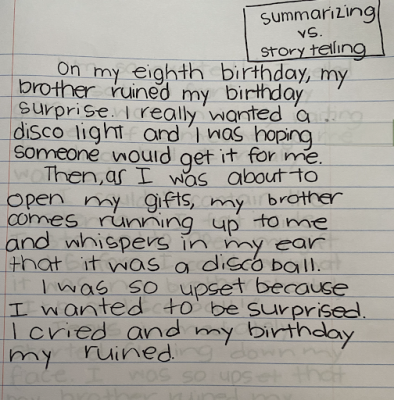 summarizing
vs.
story telling
On my eighth birthday, my
brother ruined my birthday
surprise. I really wanted a
disco light and I was hoping
someone would get it for me.
Then, as I was about to
open my gifts, my brother
comes running up to me
and whispers in my ear
that it was a disco ball.
I was so upset because
I wanted to be surprised.
I cried and my birthday
my ruined.